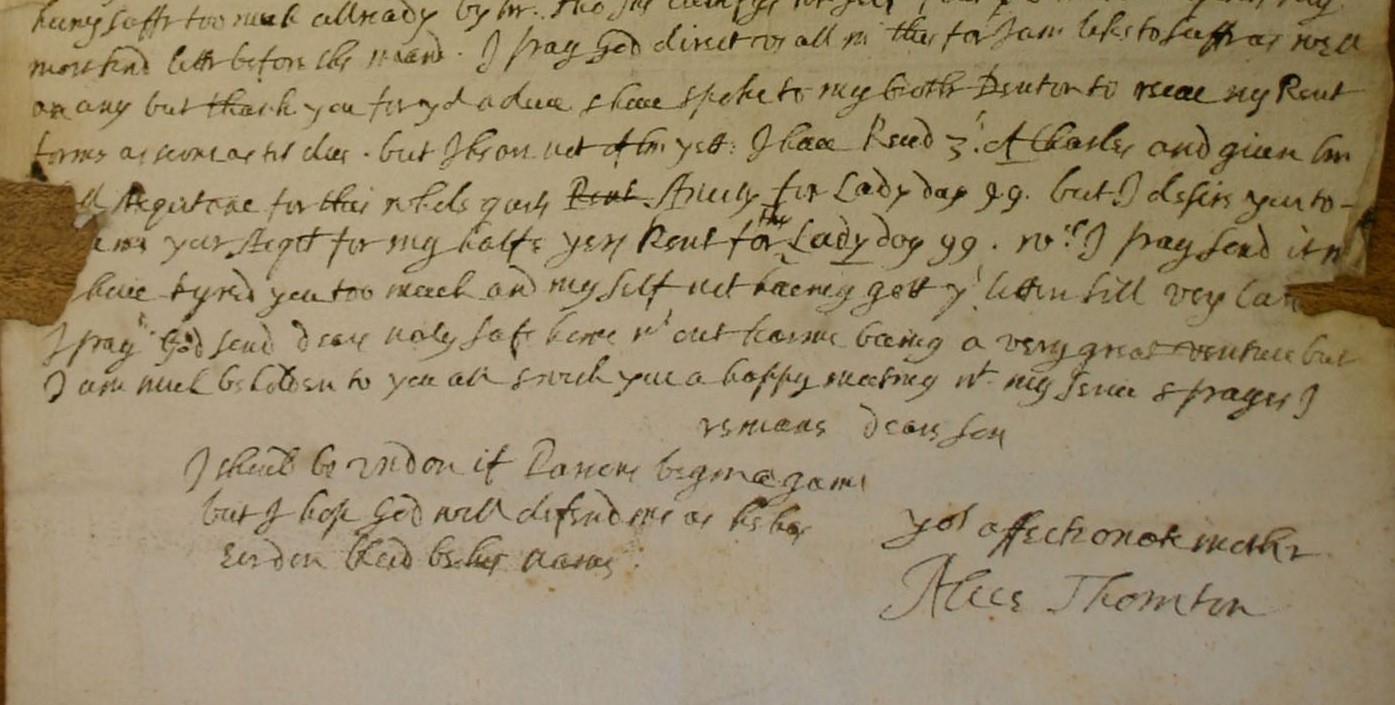 suffr too much allready by
most kind lettr before she . I pray God direct vs all in this for I am like to suffer as well
as any but thank you for yr aduice I haue spoke to my brothr Denton to receae my Rent
as soone as tis due . but I hear not of him yett : I haue Receud 3l. of Charles and giuen him
Aquitance for this whols Rent . Anuity for Lady day 99 . but I desire you to -
your Aqtt for my halfe yers Rent for this Lady day 99 . wch I pray send it
haue tyred you too much and my self not haueing gott yr lettr till very late
I pray God send deare safe home wt out harme being a very great venture but
I am much beholden to you all & wish you a happy meeting wt my seruice & prayers I
remane deare son
I should be vndon if begine againe
but I hope God will defend me as he has
euer don blesd be his name .
yor affectionate mother
Alice Thornton